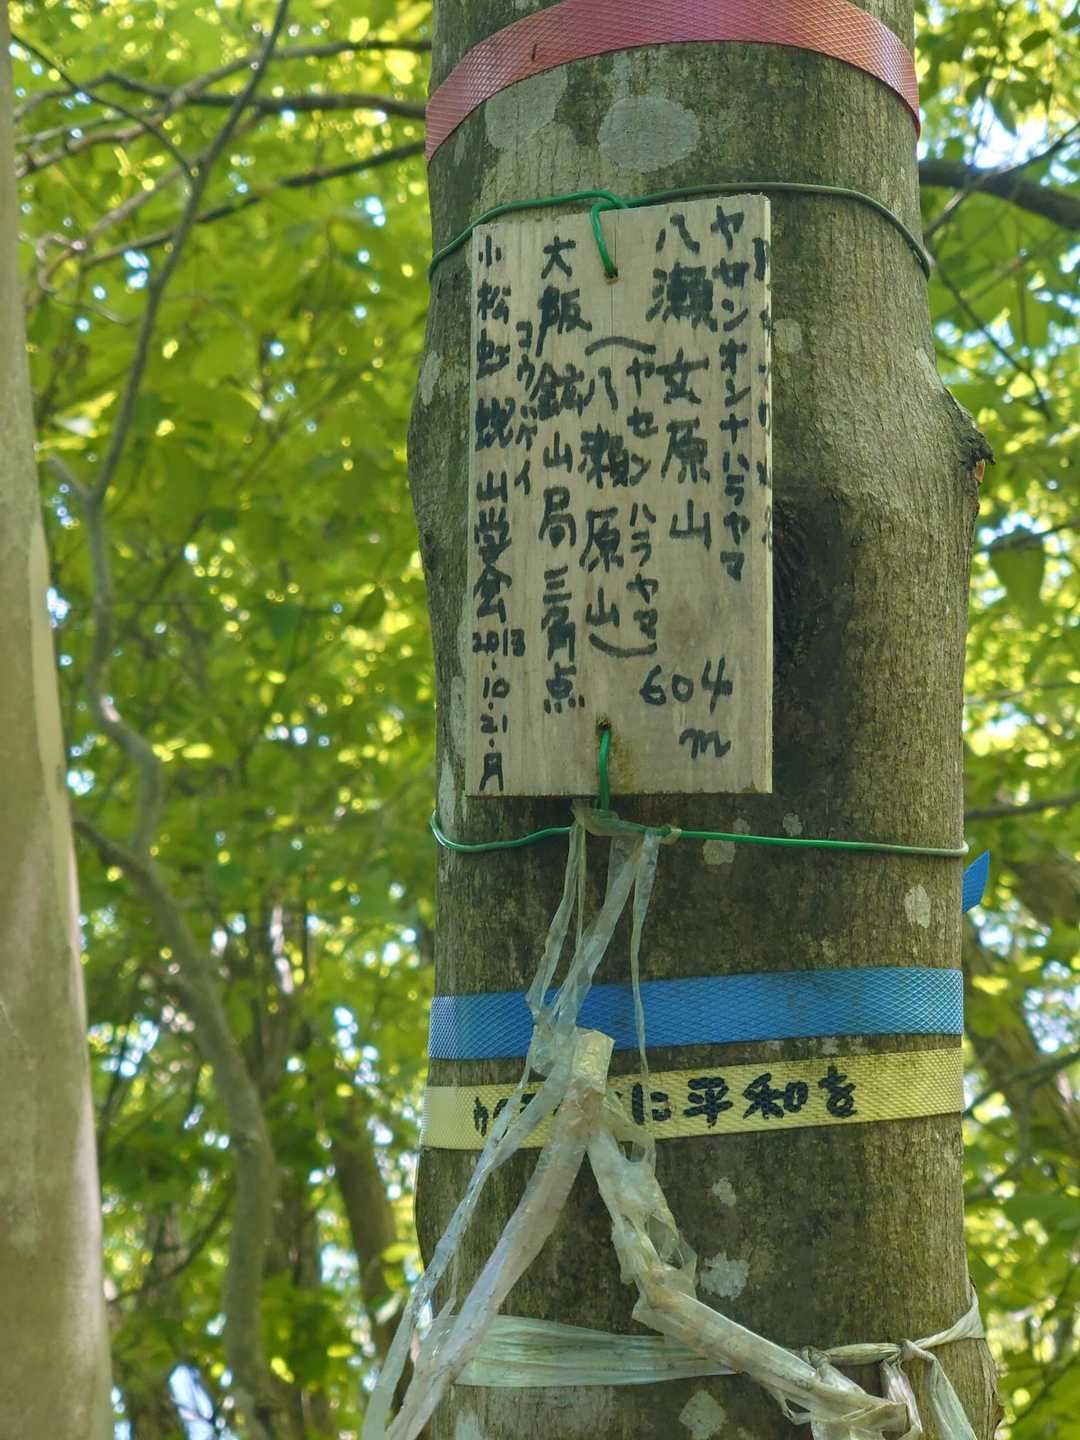 ヤセンオンナハラヤマ
八瀬女原山
604m
ヤセンハラヤマ
(八瀬原山)
大阪鉱山局三角点
コウゲイ
小松虹蜺山学会 2013.10.21.月
に平和を